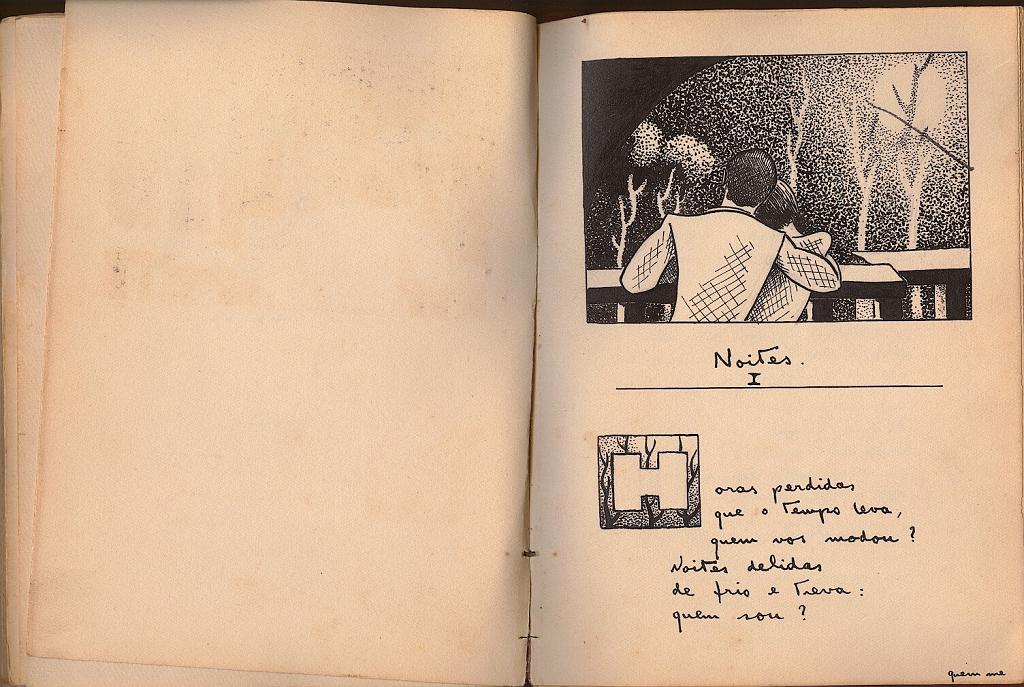 Noites.
I
Horas perdidas
que o Tempo leva,
quem vos modou?
Noites delidas
de frio e Treva:
quem sou?
quem me